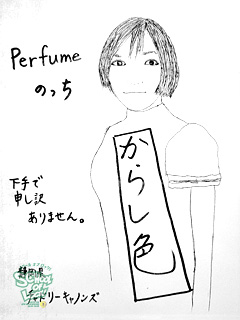 Perfume
のっち
からし色
下手で
申し訳
ありません。
静岡県
チャドリーキャノンズ